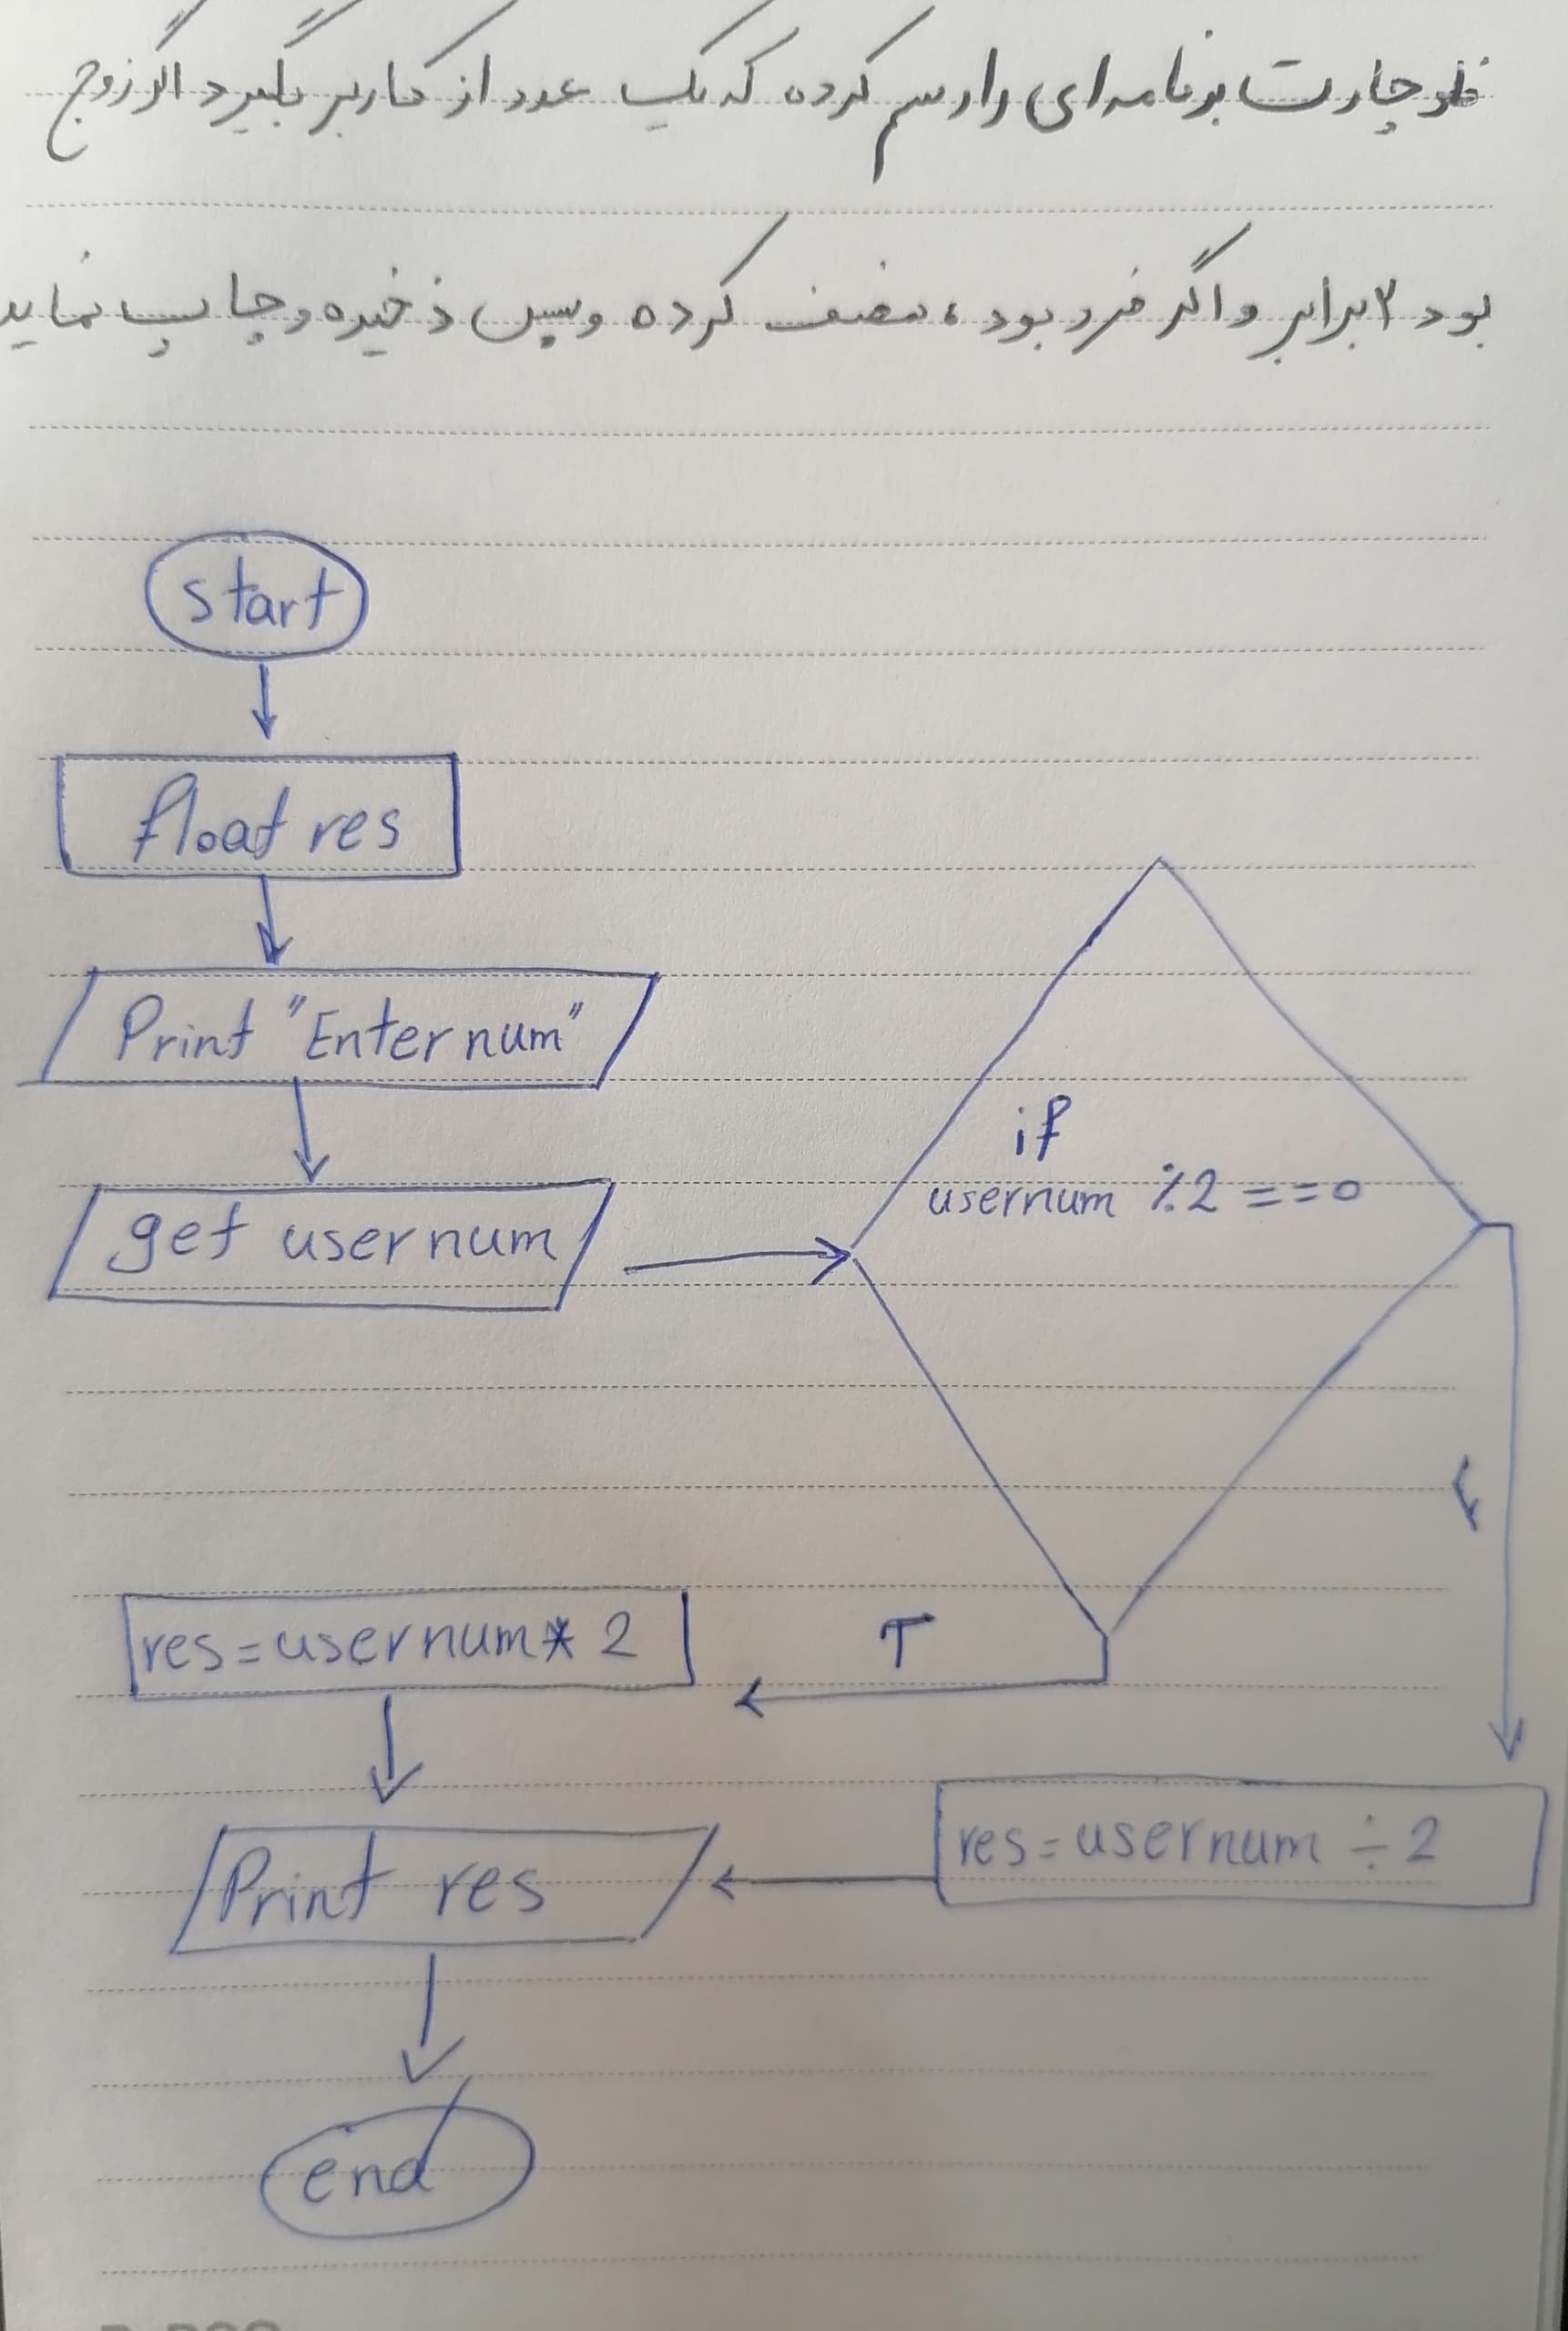 فلوچارت برنامه‌ای را رسم کرده که یک عدد از کاربر بگیرد اگر زوج
بود ۲ برابر و اگر فرد بود، نصف کرده و سپس ذخیره و چاپ نماید
start
float res
Print "Enter num"
get usernum
if
usernum %2 ==0
F
T
res=usernum* 2
res=usernum ÷2
Print res
end